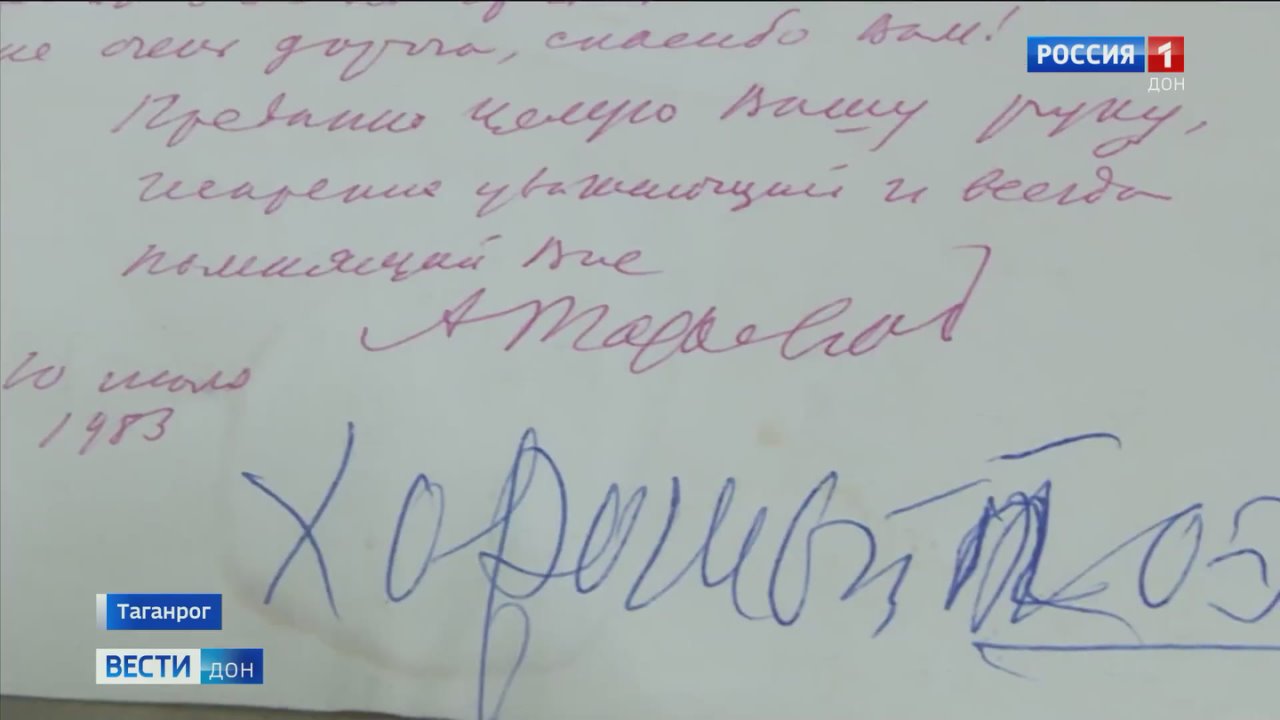 не очень дорога, спасибо Вам!
Преданно целую Вашу руку,
искренне уважающий и всегда
помнящий Вас
10 июля
1983
РОССИЯ 1
ДОН
Таганрог
ВЕСТИ ДОН